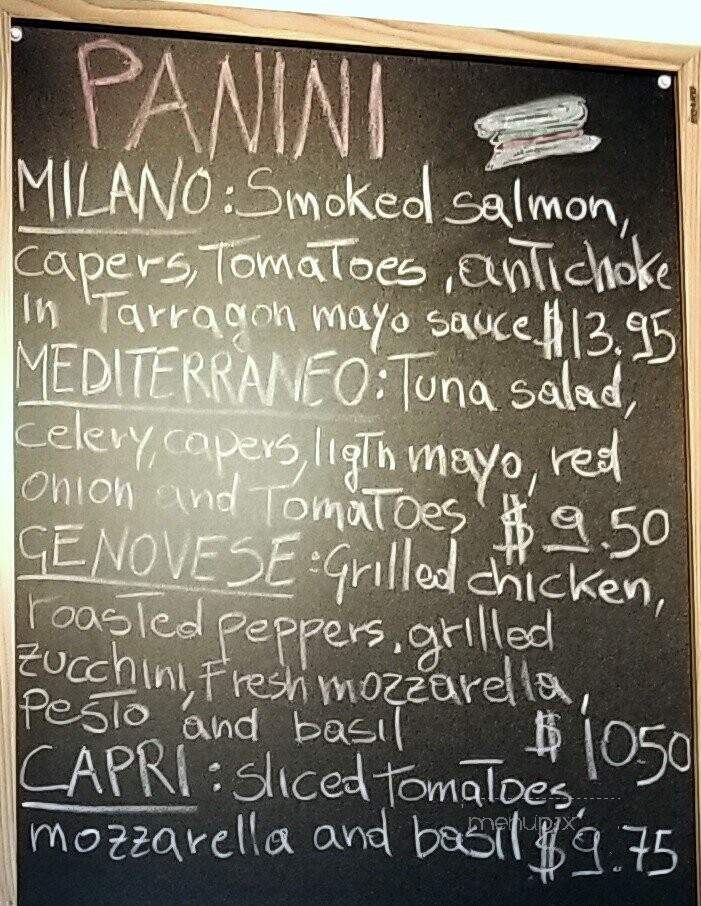 PANINI
MILANO: Smoked salmon,
capers, Tomatoes, antichoke
in Tarragon mayo sauce $13.95
MEDITERRANEO: Tuna salad,
celery, capers, ligth mayo, red
onion and Tomatoes $9.50
GENOVESE: Grilled chicken,
roasted peppers, grilled
zucchini, Fresh mozzarella,
Pesto and basil $1050
CAPRI: Sliced tomatoes,
menupix
mozzarella and basil $9.75